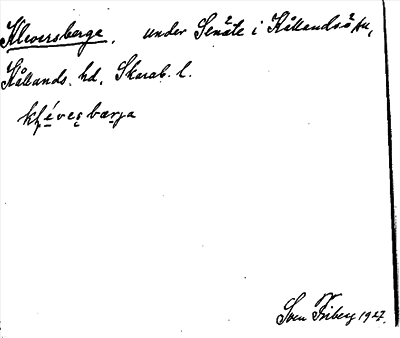 Kleversberga, under Senäte i Kållandsö sn,
Kållands. hd, Skarab. l.
Sven Friberg 1927.